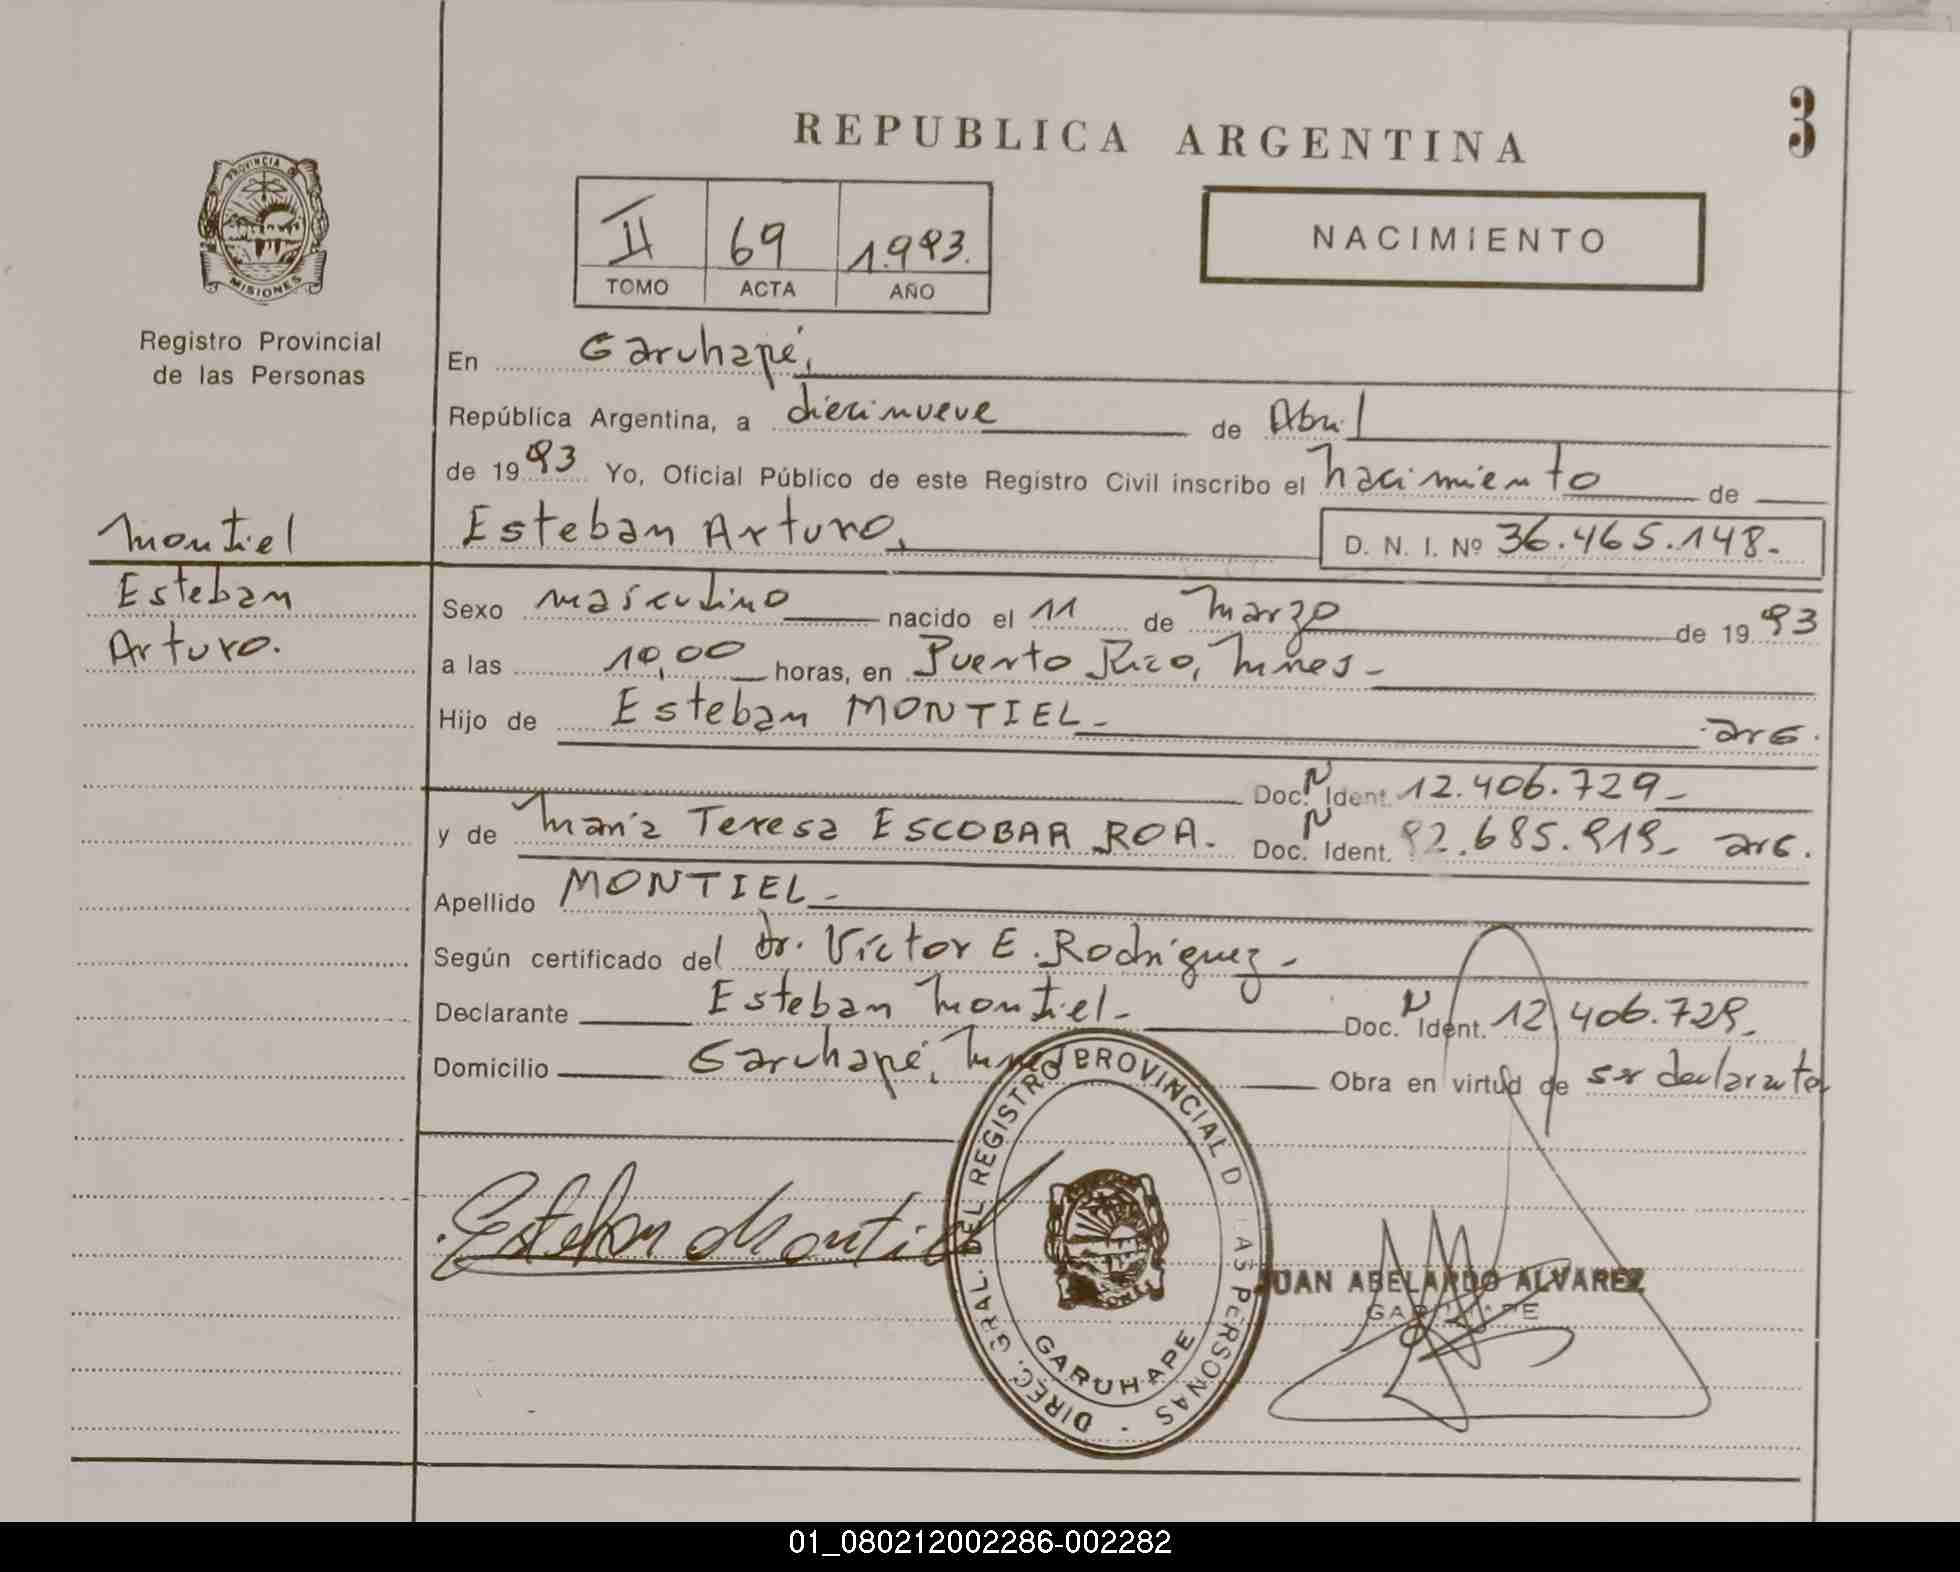 REPUBLICA ARGENTINA
3
PROVINCIA DE
MISIONES
Registro Provincial
de las Personas
II 69 1.993.
TOMO ACTA AÑO
NACIMIENTO
En Garuhapé,
República Argentina, a diecinueve de Abril
de 1993 Yo, Oficial Público de este Registro Civil inscribo el nacimiento de
Montiel
Esteban
Arturo.
Esteban Arturo, D. N. I. Nº 36.465.148.-
Sexo masculino nacido el 11 de Marzo de 1993
a las 10,00 horas, en Puerto Rico, Mnes-
Hijo de Esteban MONTIEL- arg.
Doc. N Ident. 12.406.729-
y de María Teresa ESCOBAR ROA. Doc. N Ident. 92.685.919- arg.
Apellido MONTIEL-
Según certificado del Dr. Víctor E. Rodríguez-
Declarante Esteban Montiel- Doc. N Ident. 12.406.729-
Domicilio Garuhapé, Mnes Obra en virtud de ser declarante
Esteban Montiel
DIREC. GRAL. DEL REGISTRO PROVINCIAL D LAS PERSONAS
GARUHAPE
JUAN ABELARDO ALVAREZ
GARUHAPE
01_080212002286-002282